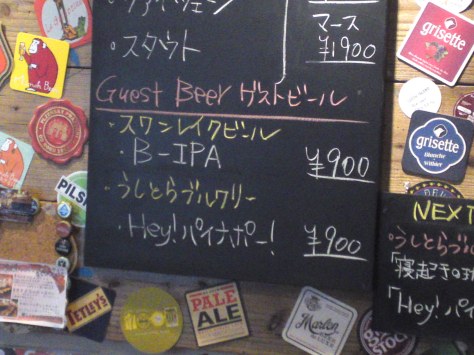 ・ヴァイツェン
・スタウト
マース
¥1900
Guest Beer ゲストビール
・スワンレイクビール
・B-IPA ¥900
・うしとらブルワリー
・Hey!パイナポー! ¥900
NEXT
うしとらブル
「寝起きの
「Hey!パイ
grisette
grisette
Blanche
PILS
TETLEY'S
PALE
ALE
Marlen